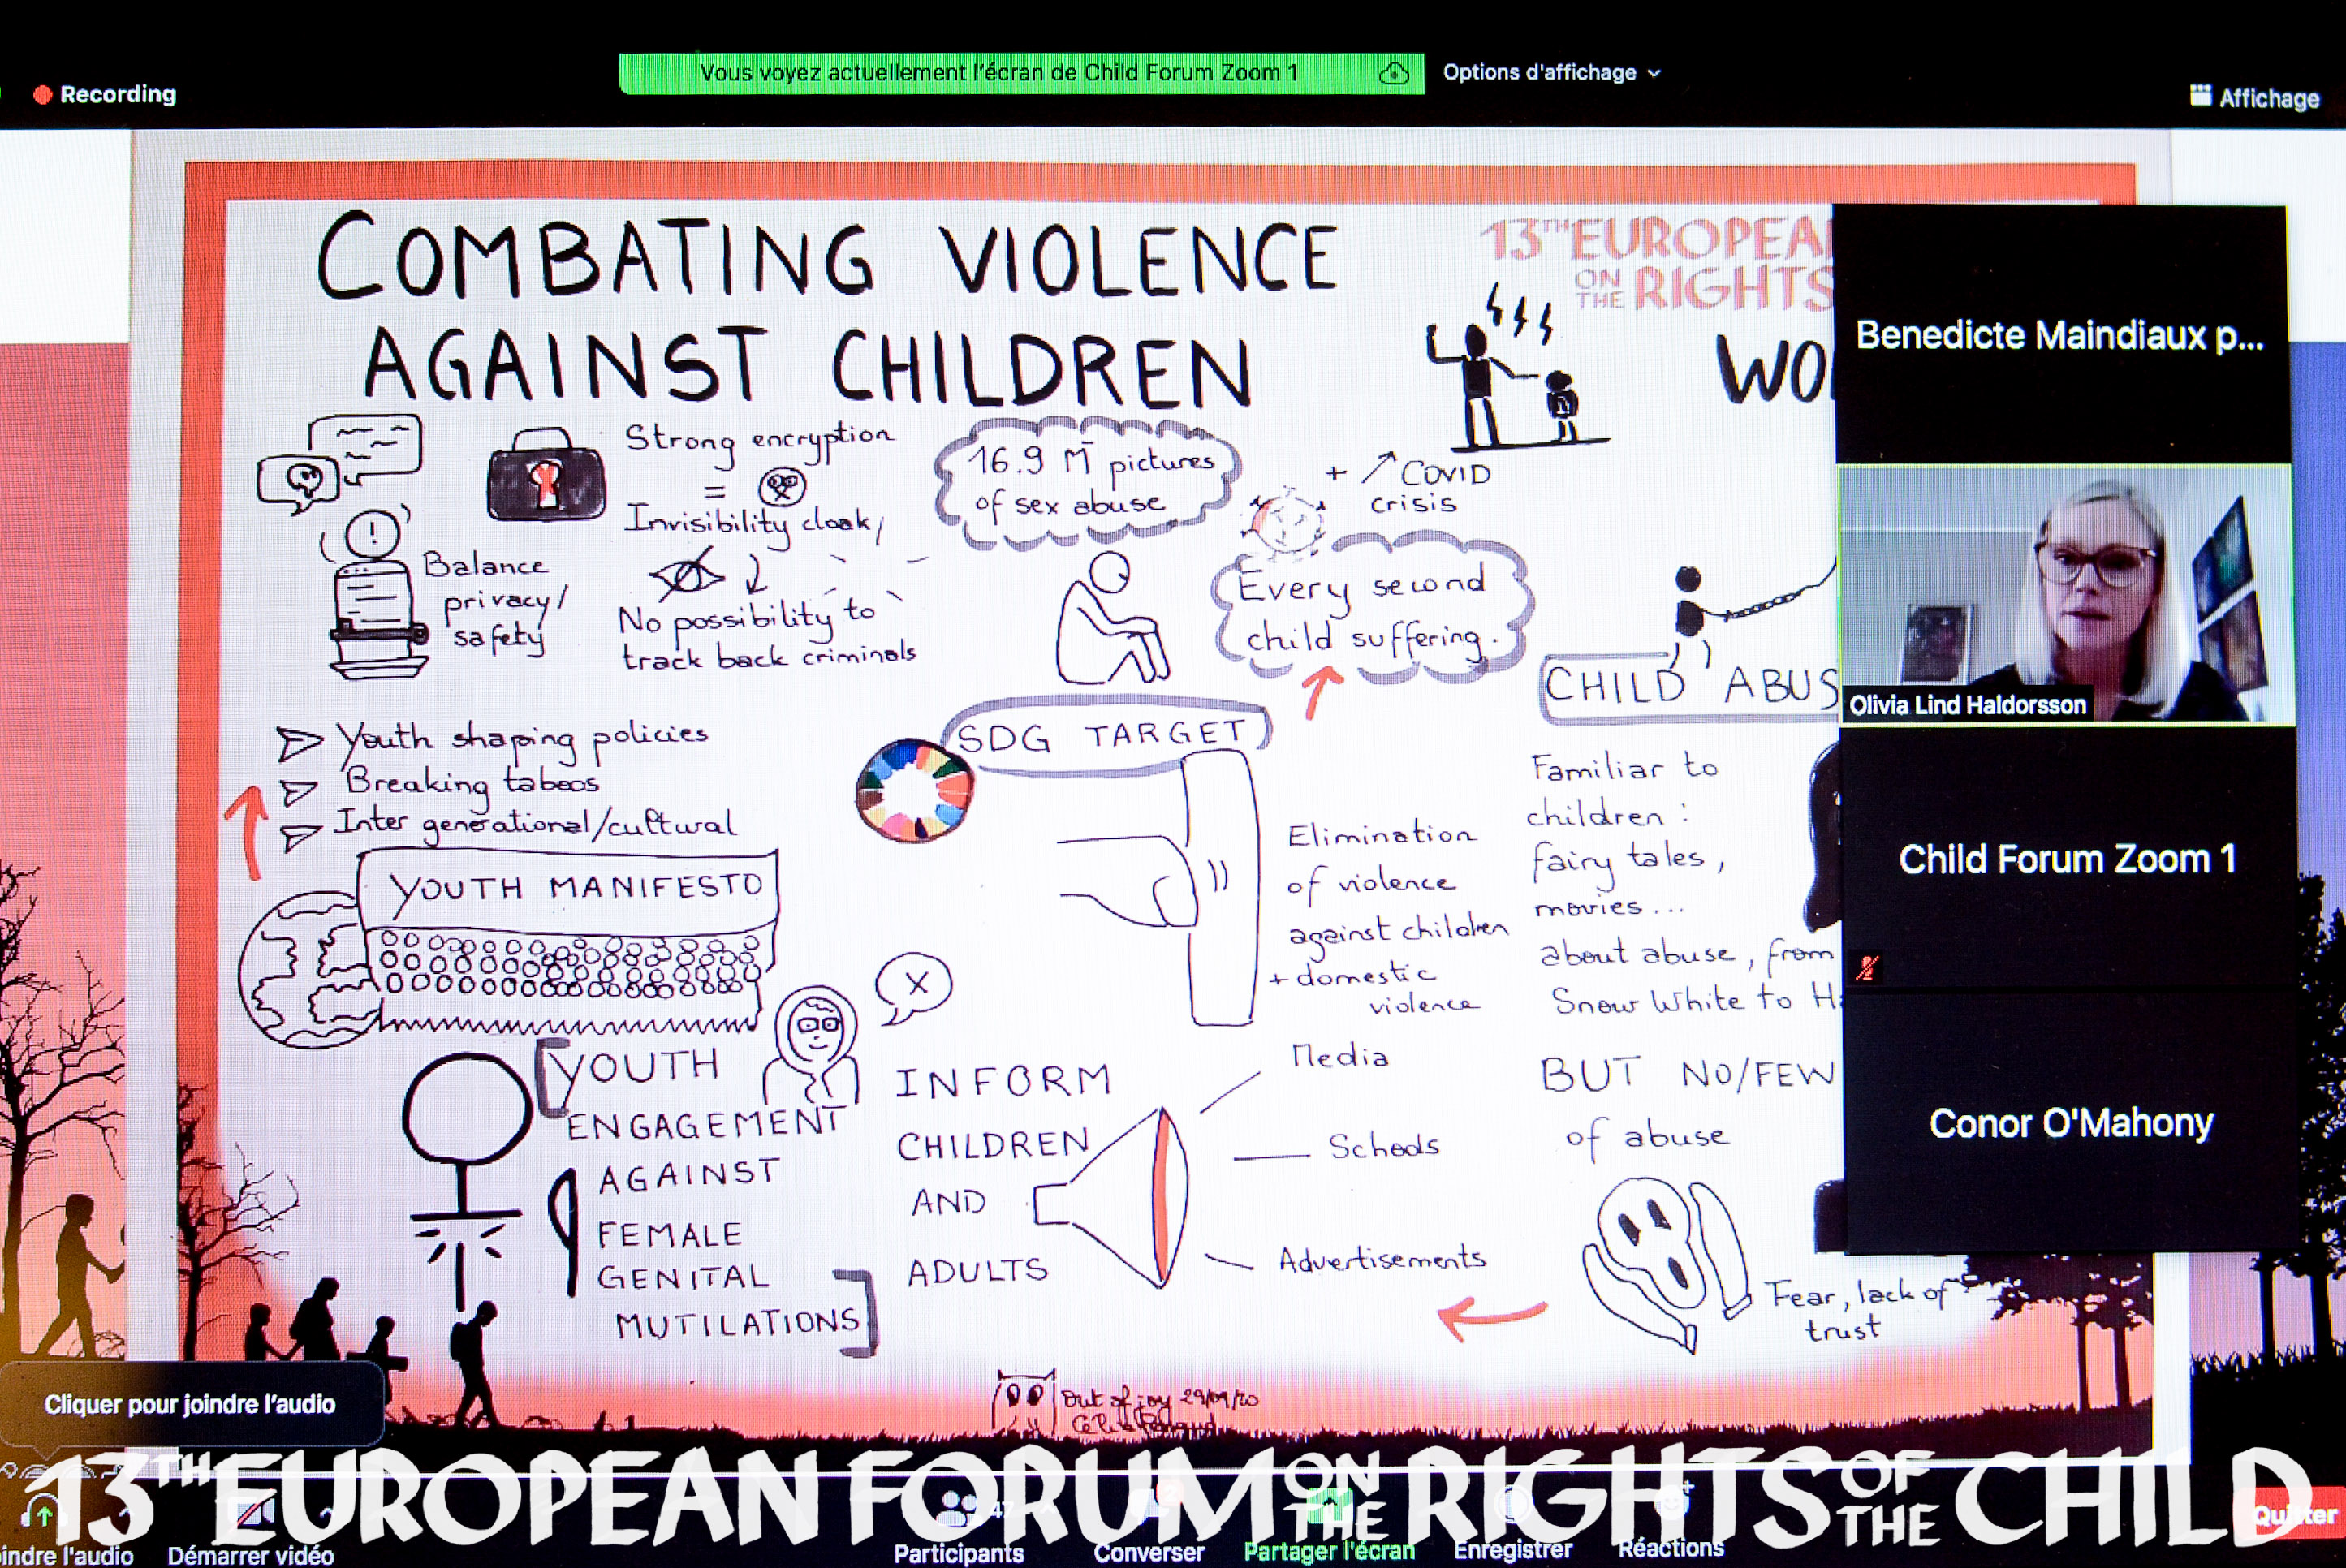 Recording
Vous voyez actuellement l'écran de Child Forum Zoom 1
Options d'affichage
Affichage
COMBATING VIOLENCE
AGAINST CHILDREN
13TH EUROPEA
ON THE RIGHTS
WO
Strong encryption
=
Invisibility cloak/
No possibility to
track back criminals
Balance
privacy/
safety
16.9 M pictures
of sex abuse
+ ↗ COVID
crisis
Every second
child suffering.
CHILD ABUS
Youth shaping policies
Breaking taboos
Inter generational/cultural
YOUTH MANIFESTO
SDG TARGET
Elimination
of violence
against children
+ domestic
violence
Familiar to
children :
fairy tales,
movies...
about abuse, from
Snow White to H
BUT NO/FEW
of abuse
Fear, lack of
trust
YOUTH
ENGAGEMENT
AGAINST
FEMALE
GENITAL
MUTILATIONS
X
INFORM
CHILDREN
AND
ADULTS
Media
Schools
Advertisements
Out of joy 29/09/20
Benedicte Maindiaux p...
Olivia Lind Haldorsson
Child Forum Zoom 1
Conor O'Mahony
Cliquer pour joindre l'audio
13TH EUROPEAN FORUM ON THE RIGHTS OF THE CHILD
47
Quitter
indre l'audio
Démarrer vidéo
Participants
Converser
Partager l'écran
Enregistrer
Réactions